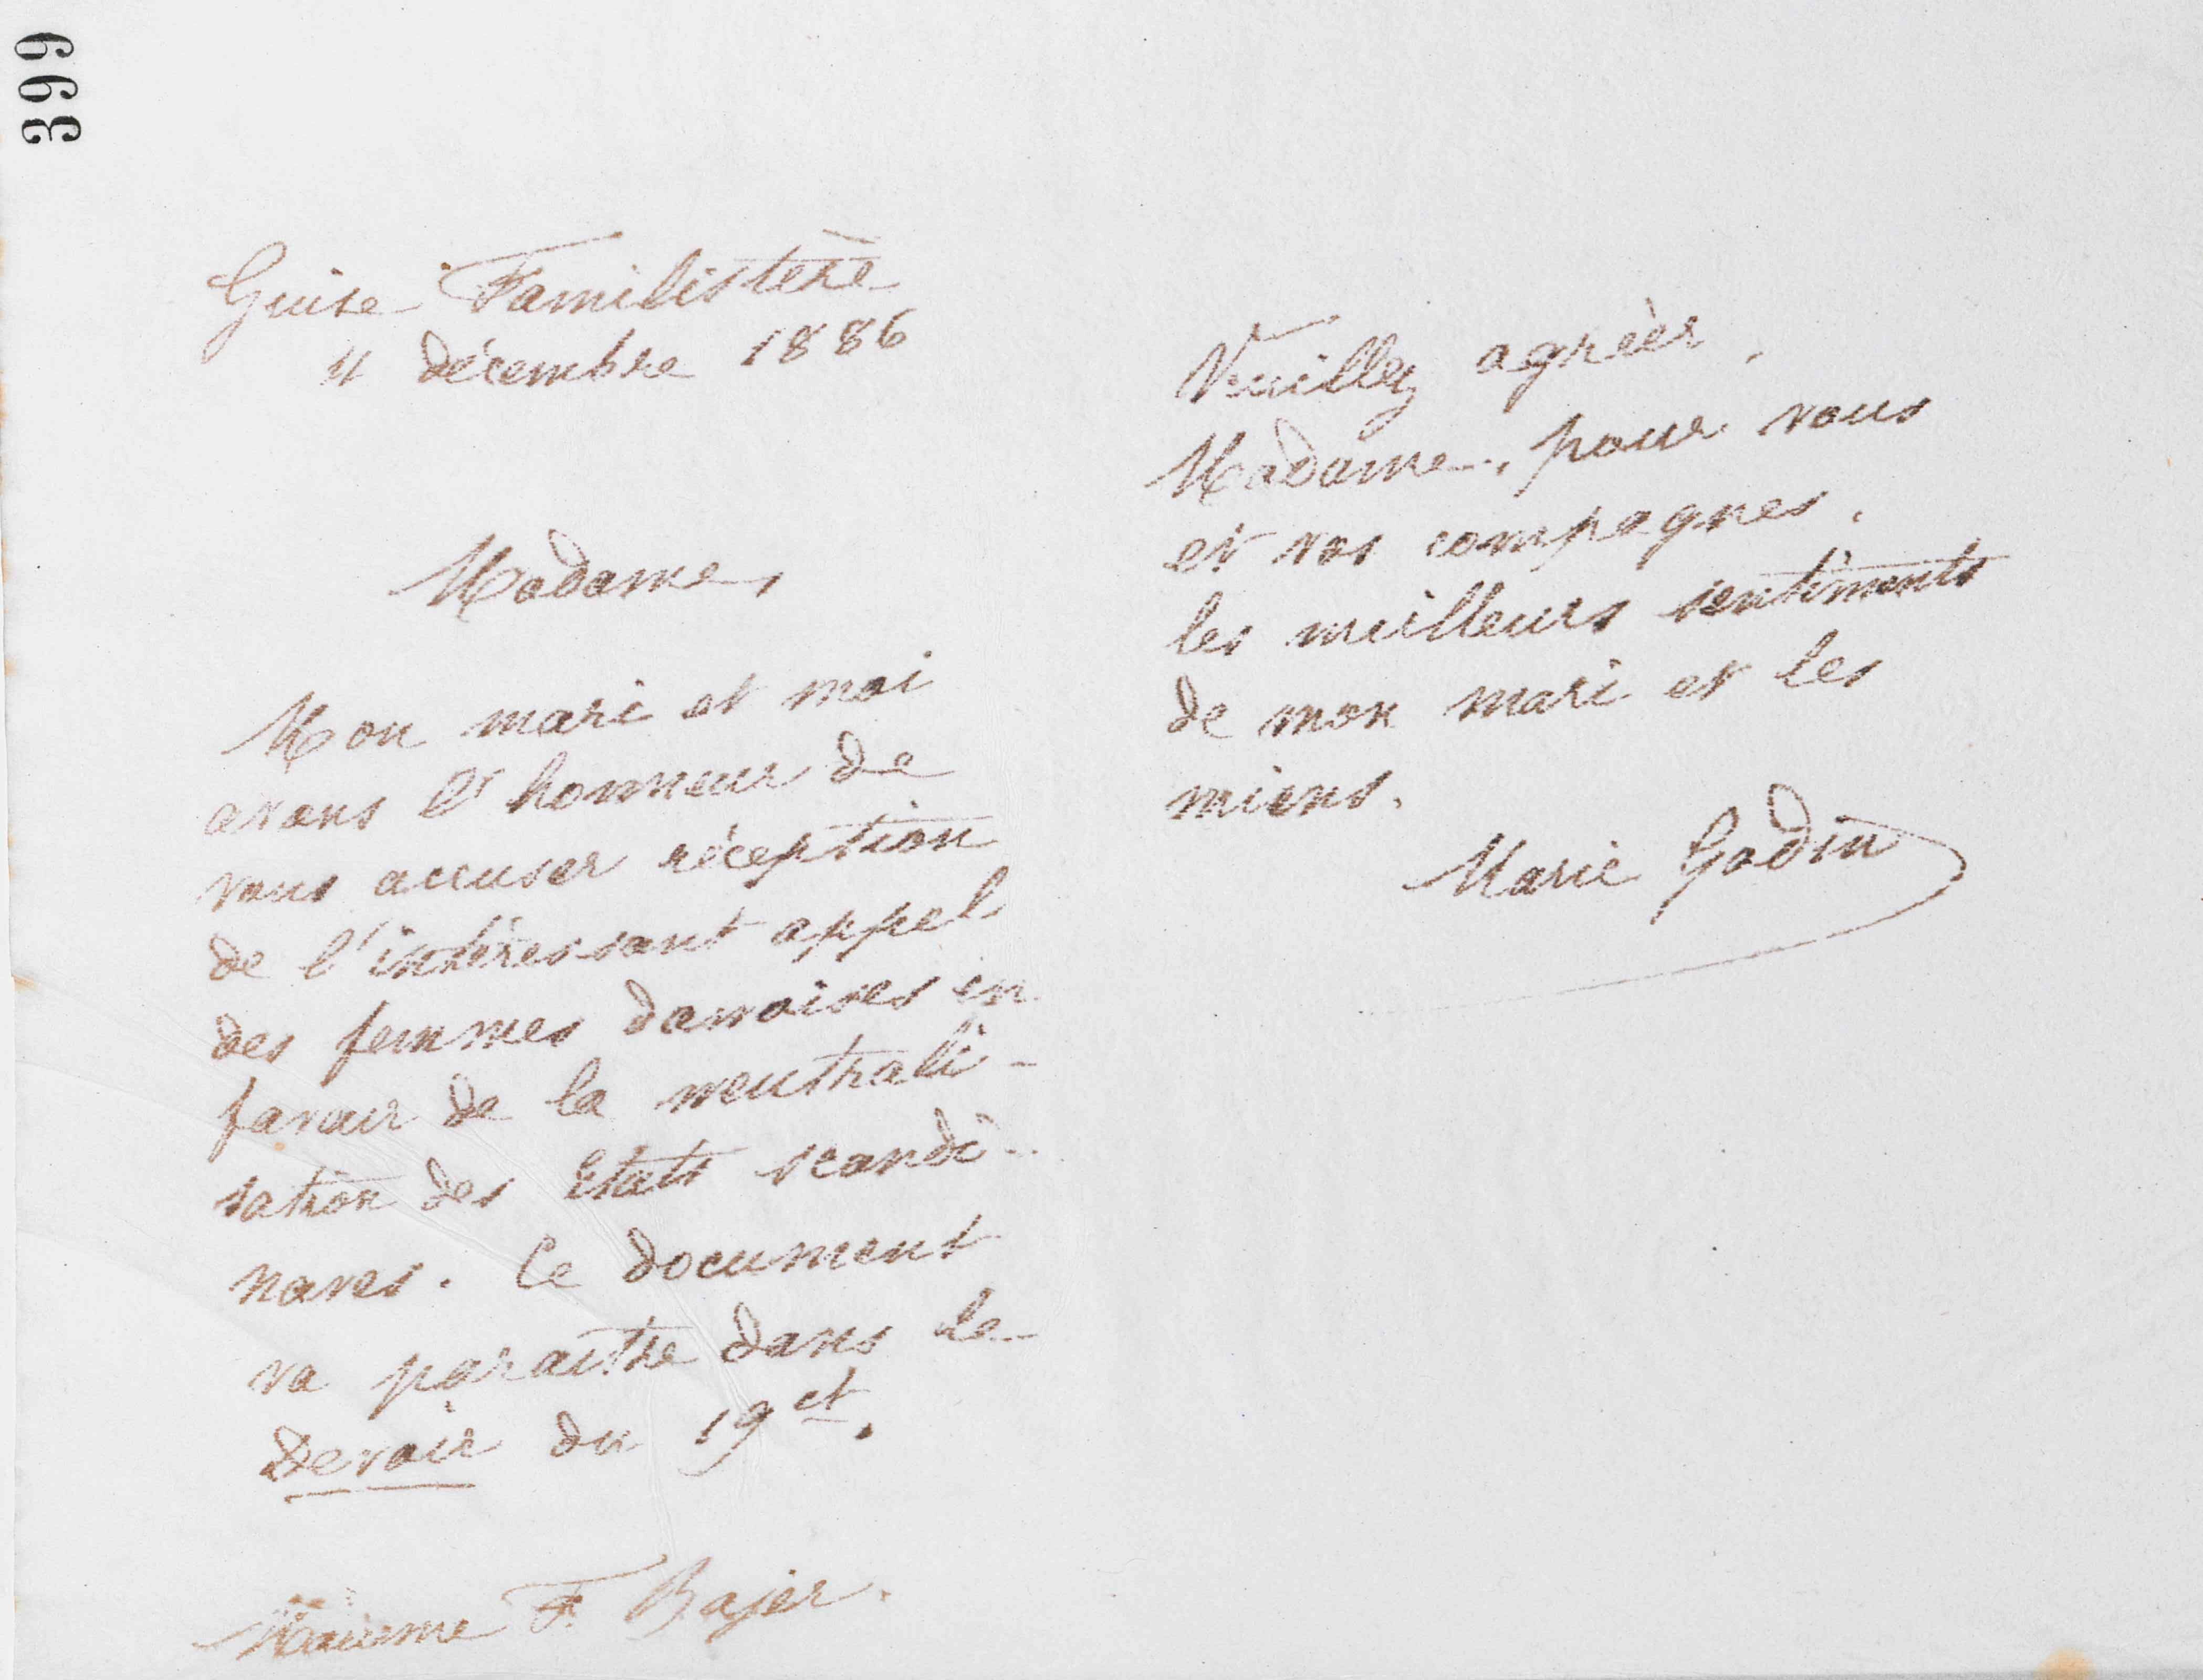 399
Guise Familistère
11 décembre 1886
Madame,
Mon mari et moi
avons l'honneur de
vous accuser réception
de l'intéressant appel
des femmes danoises en
faveur de la neutrali-
sation des Etats scandi-
naves. Ce document
va paraître dans le
Devoir du 19 ct.
Madame F. Bajer.
Veuillez agréer,
Madame, pour vous
et vos compagnes,
les meilleurs sentiments
de mon mari et les
miens.
Marie Godin